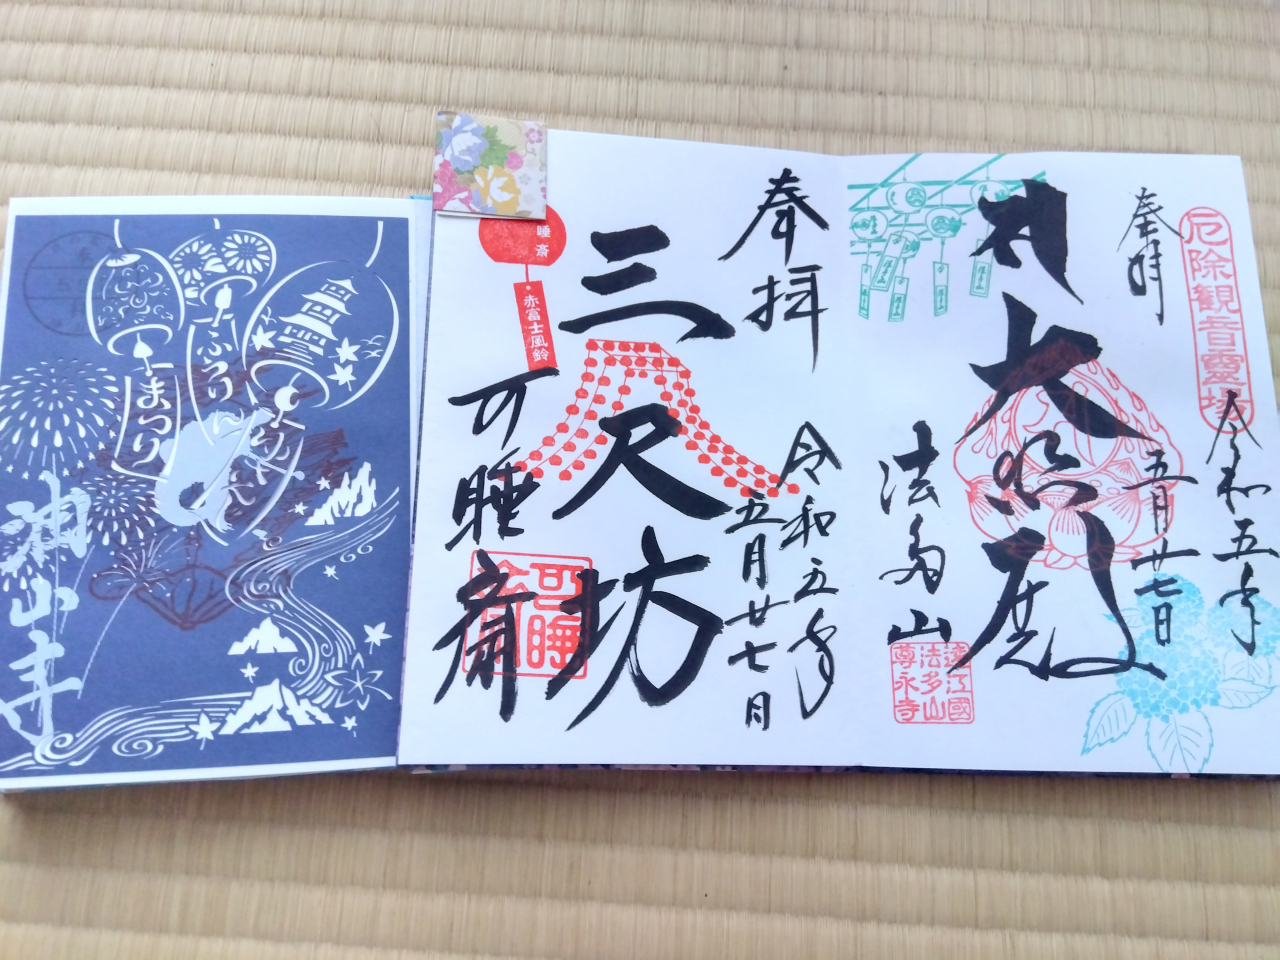 厄除観音霊場
奉拝
令和五年
五月廿七日
大悲殿
法多山
遠江國
法多山
尊永寺
奉拝
令和五年
五月廿七日
三尺坊
可睡斎
可睡
睡斎
赤富士風鈴
ふうりん
まつり
神山寺